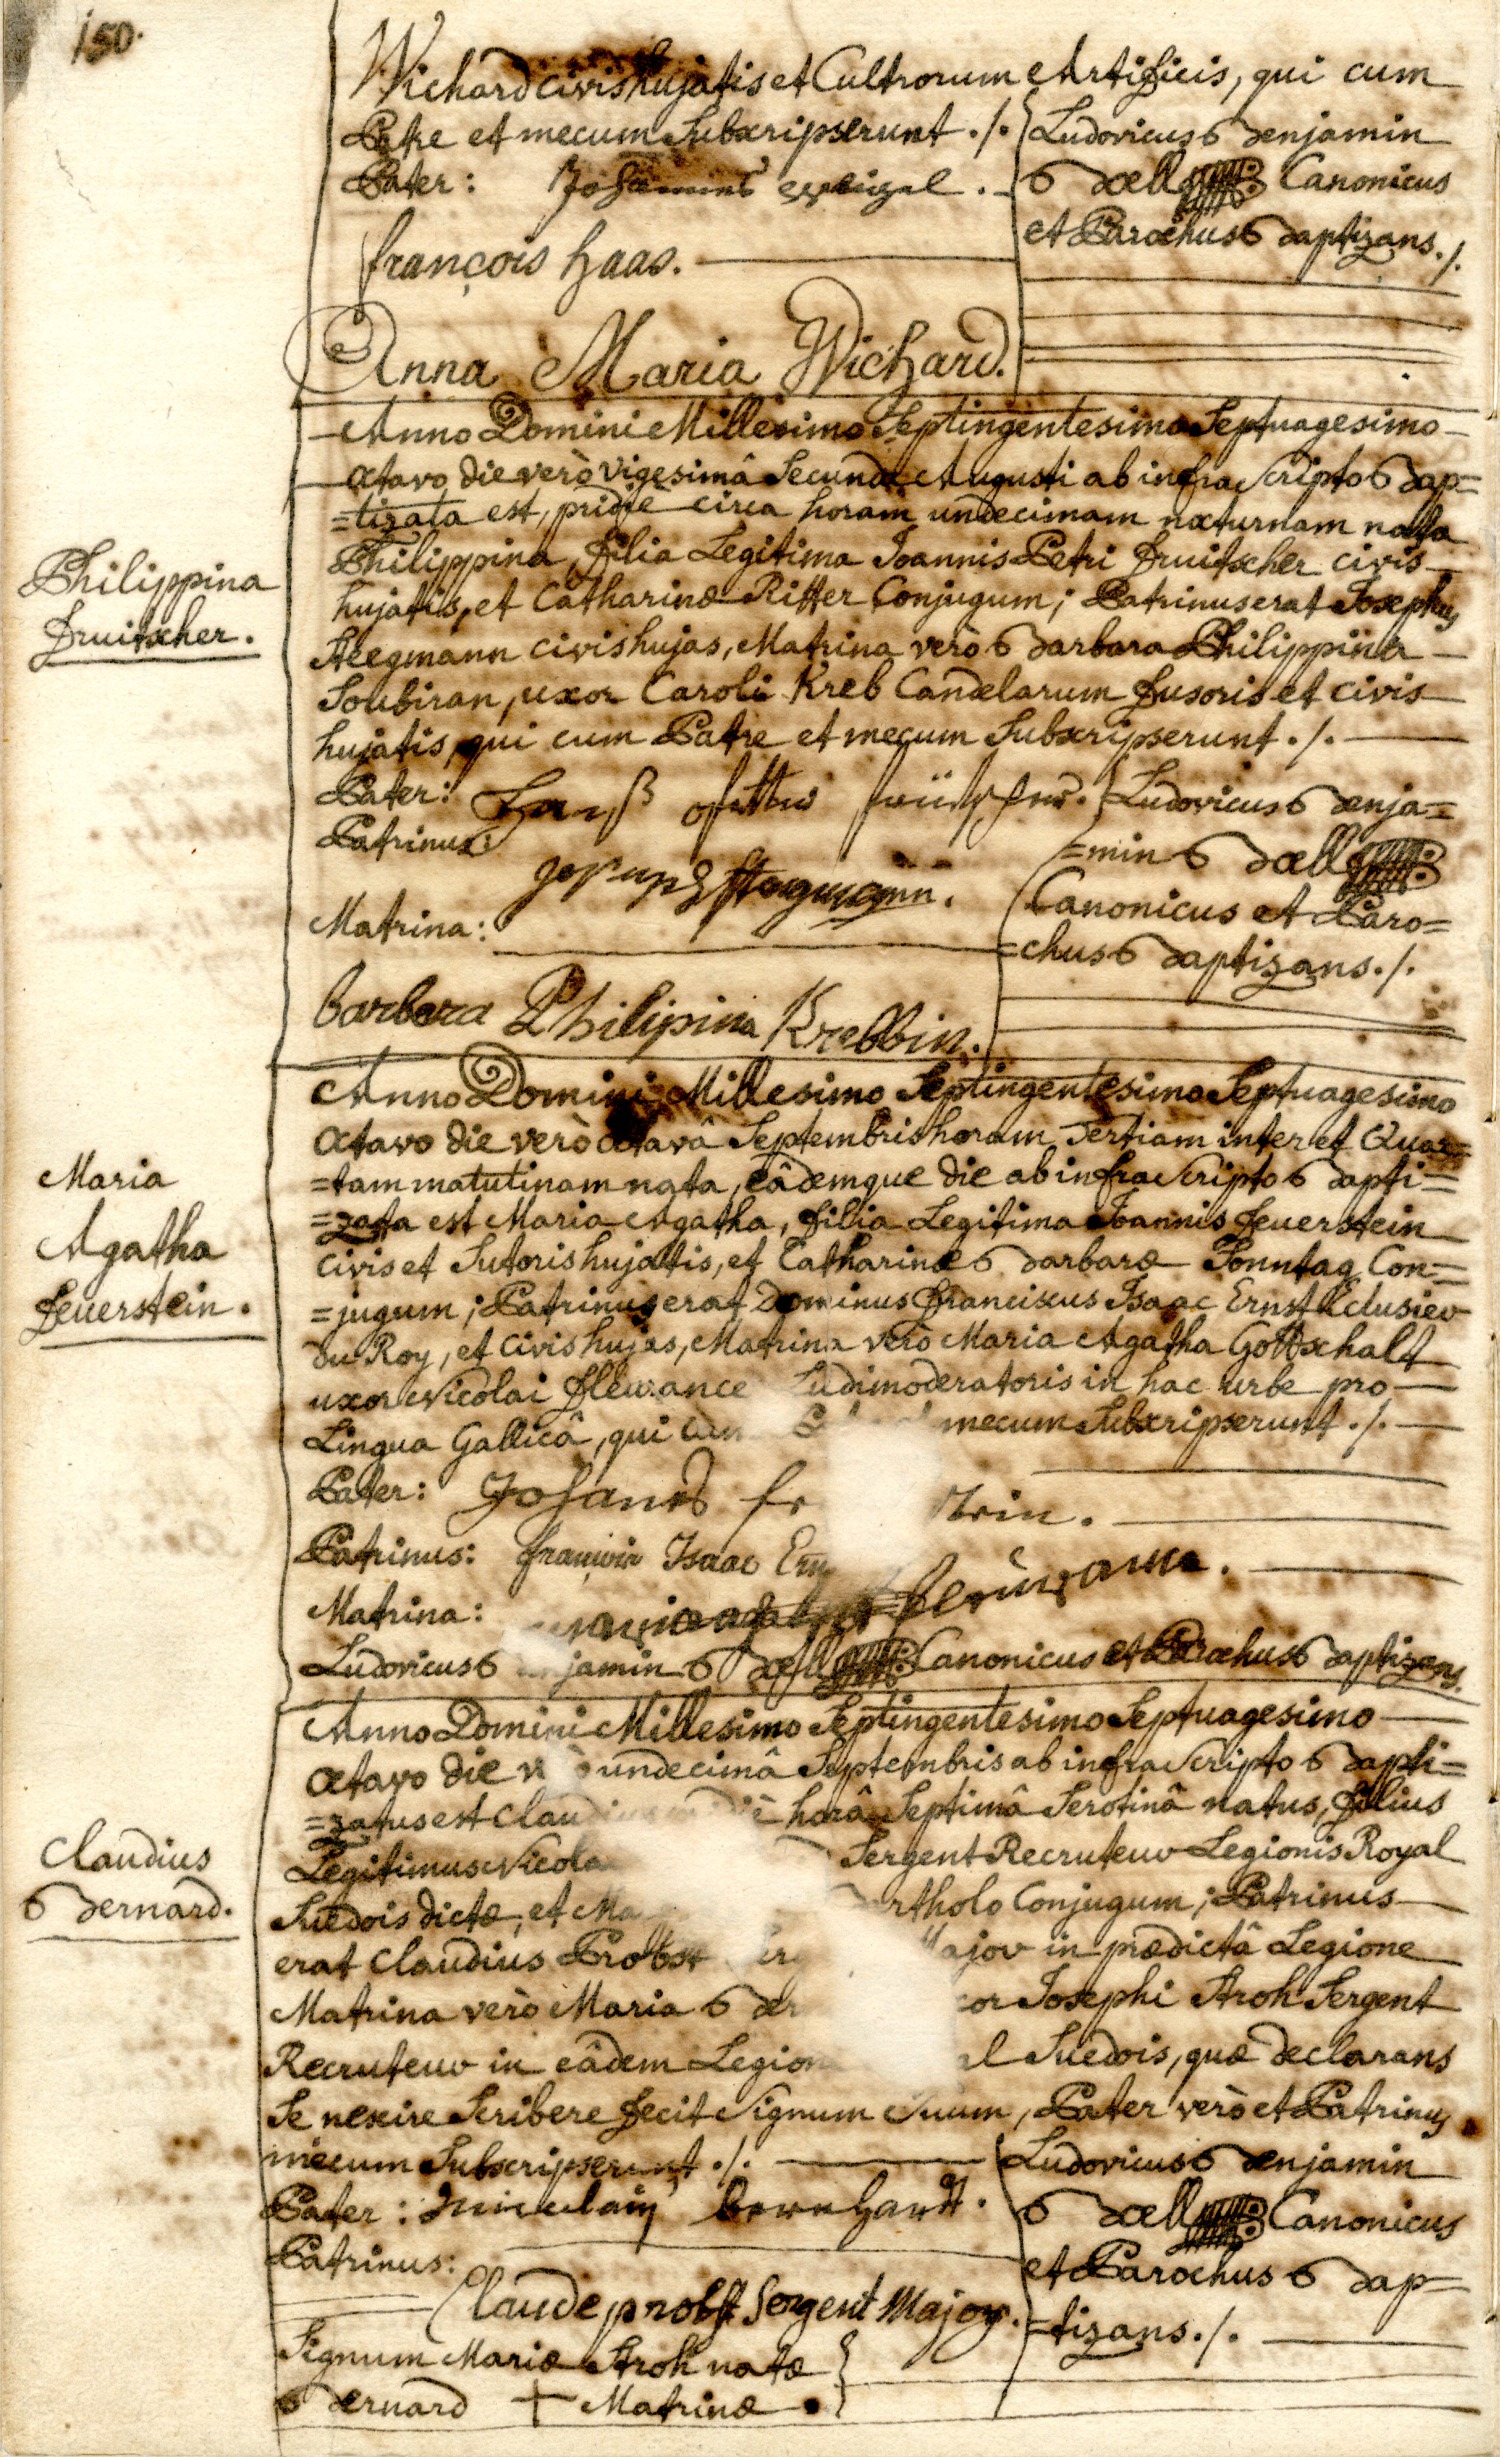 150.
Wichard civis hujatis et Cultrorum Artificis, qui cum
Patre et mecum Subscripserunt ./.
Pater: Johannes
françois haas.
Anna Maria Wichard.
Ludovicus Benjamin
Boell Canonicus
et Parochus Baptizans ./.
Philippina
Fruitscher.
Anno Domini Millesimo Septingentesimo Septuagesimo
octavo die verò vigesimâ Secundâ Augusti ab infra Scripto Bap=
=tizata est, pridiè circa horam undecimam nocturnam nata
Philippina, filia Legitima Joannis Petri Fruitscher civis
hujatis, et Catharinæ Ritter Conjugum; Patrinus erat Josephus
Stegmann civis hujas, Matrina verò Barbara Philippina
Soubiran, uxor Caroli Kreb Candelarum Fusoris et civis
hujatis, qui cum Patre et mecum Subscripserunt ./.
Pater: Hanß
Patrinus:
Joseph Stegmann.
Matrina:
barbara Philipina Krebbin.
Ludovicus Benja=
=min Boell
Canonicus et Paro=
=chus Baptizans ./.
Maria
Agatha
Feuerstein.
Anno Domini Millesimo Septingentesimo Septuagesimo
octavo die verò octavâ Septembris horam Tertiam inter et Quar=
=tam matutinam nata, eâdemque die ab infra Scripto Bapti=
=zata est Maria Agatha, filia Legitima Joannis Feuerstein
civis et Sutoris hujatis, et Catharinæ Barbaræ Sonntag Con=
=jugum; Patrinus erat Dominus Franciscus Isaac Ernst Eclusier
du Roy, et civis hujas, Matrina verò Maria Agatha Gottschalt
uxor Nicolai Fleurance Ludimoderatoris in hac urbe pro
Lingua Gallicâ, qui cum mecum Subscripserunt ./.
Pater: Johanes
Patrinus: françois Isaac
Matrina: maria agatha
Ludovicus jamin Boell Canonicus et Parochus Baptizans.
Claudius
Bernard.
Anno Domini Millesimo Septingentesimo Septuagesimo
octavo die undecimâ Septembris ab infra Scripto Bapti=
=zatus est Claudius horâ Septimâ Serotinâ natus, filius
Legitimus Sergent Recruteur Legionis Royal
Suedois dictæ, et rtholo Conjugum; Patrinus
erat Claudius Probst Major in prædictâ Legione
Matrina verò Maria Josephi Stroh Sergent
Recruteur in eâdem Legion Suedois, quæ declarans
Se nescire Scribere fecit Signum Suum, Pater verò et Patrinus
mecum Subscripserunt ./.
Pater: bernhardt.
Patrinus:
Claude probst Sergent Major.
Signum Mariæ Stroh natæ
Bernard + Matrinæ
Ludovicus Benjamin
Boell Canonicus
et Parochus Bap=
=tizans ./.